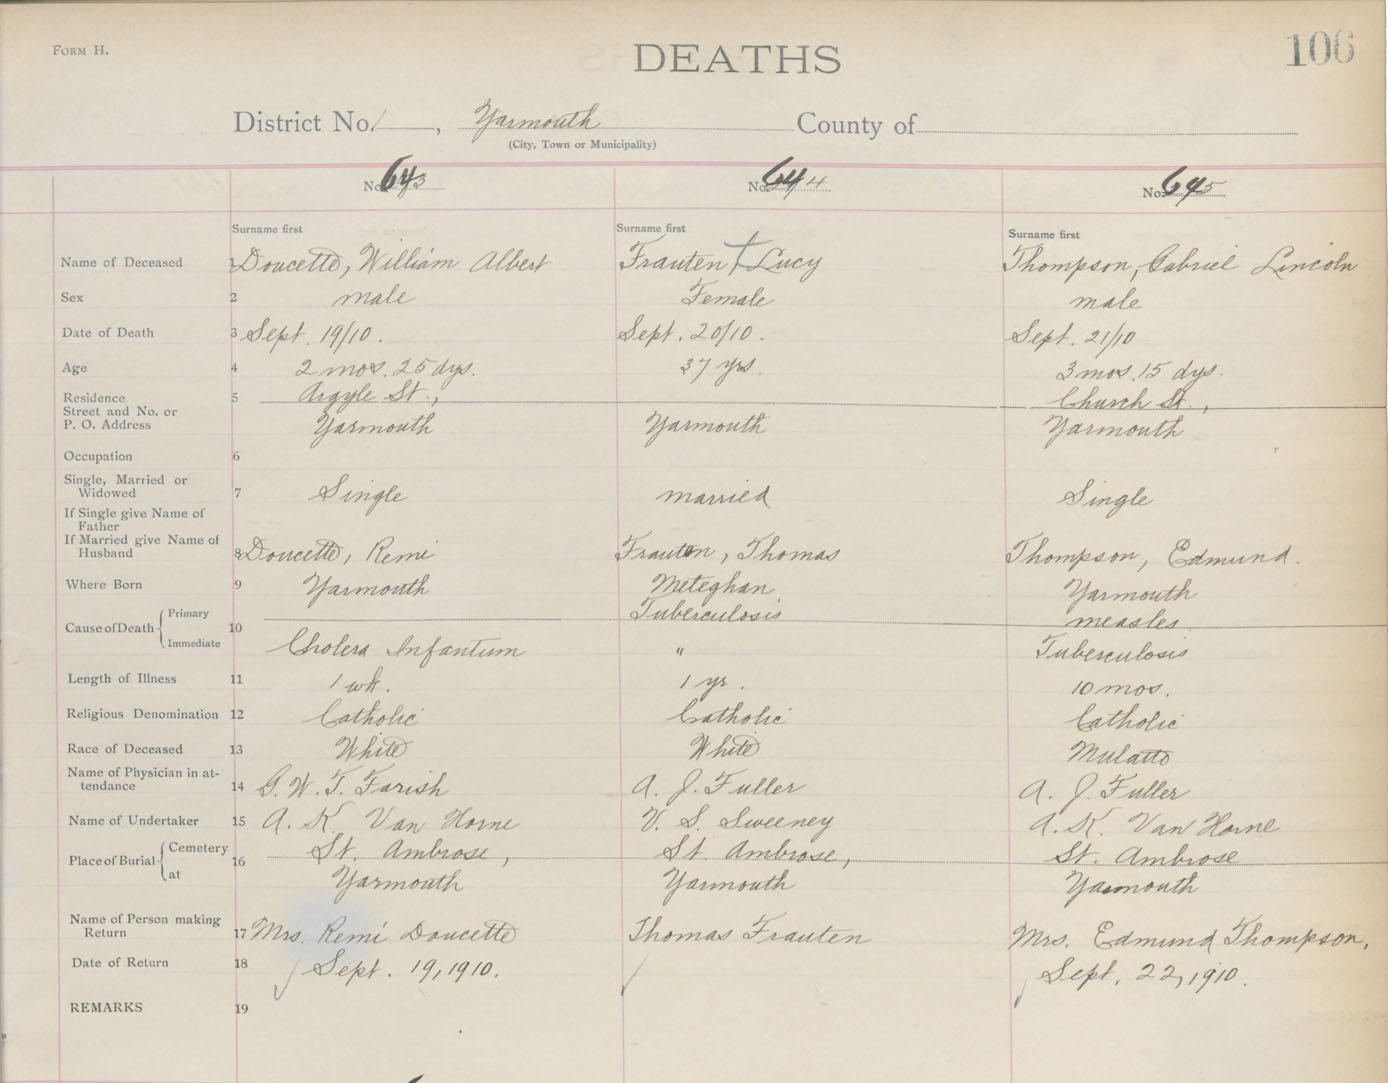 FORM H.
DEATHS
106
District No. 1, Yarmouth County of
(City, Town or Municipality)
No. 643 No. 644 No. 645
Surname first Surname first Surname first
Name of Deceased 1 Doucette, William Albert Frauten Lucy Thompson, Gabriel Lincoln
Sex 2 male Female male
Date of Death 3 Sept. 19/10. Sept. 20/10. Sept. 21/10
Age 4 2 mos. 25 dys. 37 yrs. 3 mos. 15 dys.
Residence 5 Argyle St., Church St.,
Street and No. or
P. O. Address Yarmouth Yarmouth Yarmouth
Occupation 6
Single, Married or
Widowed 7 Single married Single
If Single give Name of
Father
If Married give Name of
Husband 8 Doucette, Remi Frauten, Thomas Thompson, Edmund.
Where Born 9 Yarmouth Meteghan Yarmouth
Cause of Death 10 Primary Tuberculosis measles
Immediate Cholera Infantum " Tuberculosis
Length of Illness 11 1 wk. 1 yr. 10 mos.
Religious Denomination 12 Catholic Catholic Catholic
Race of Deceased 13 White White Mulatto
Name of Physician in at-
tendance 14 G. W. T. Farish A. J. Fuller A. J. Fuller
Name of Undertaker 15 A. K. Van Horne V. S. Sweeney A. K. Van Horne
Place of Burial 16 Cemetery St. Ambrose, St. Ambrose, St. Ambrose
at Yarmouth Yarmouth Yarmouth
Name of Person making
Return 17 Mrs. Remi Doucette Thomas Frauten Mrs. Edmund Thompson,
Date of Return 18 Sept. 19, 1910. Sept. 22, 1910.
REMARKS 19